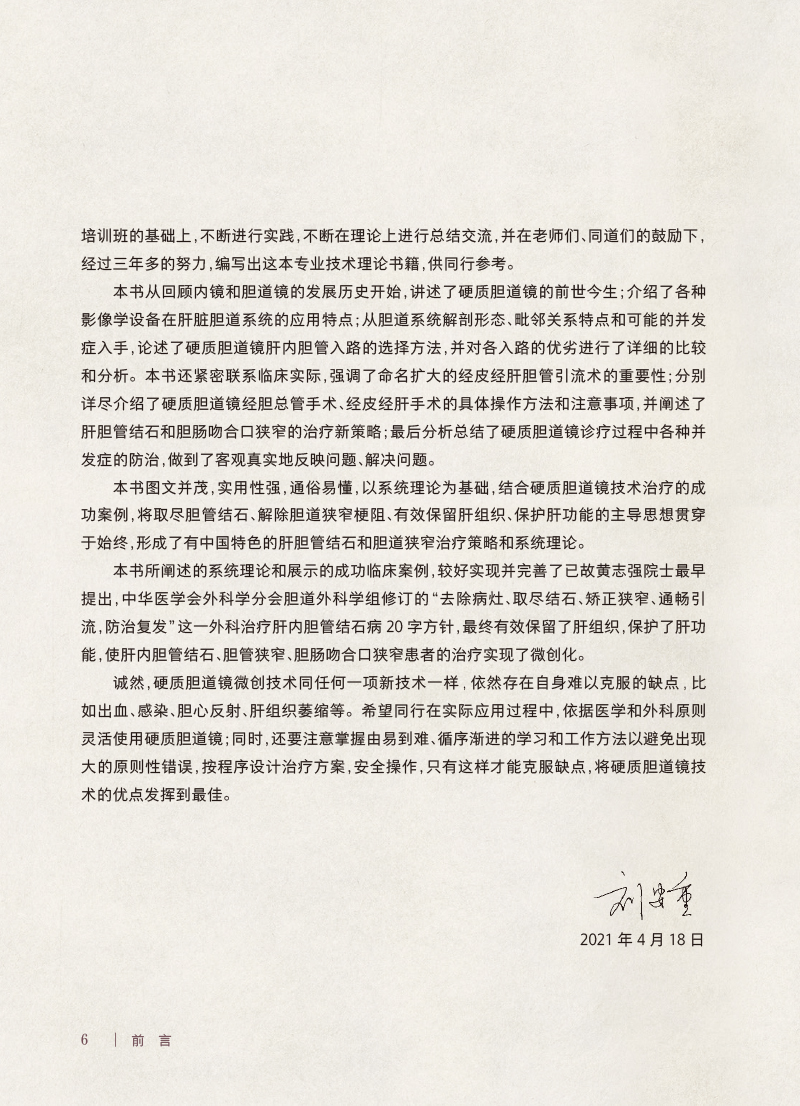 培训班的基础上,不断进行实践,不断在理论上进行总结交流,并在老师们、同道们的鼓励下,
经过三年多的努力,编写出这本专业技术理论书籍,供同行参考。
本书从回顾内镜和胆道镜的发展历史开始,讲述了硬质胆道镜的前世今生;介绍了各种
影像学设备在肝脏胆道系统的应用特点;从胆道系统解剖形态、毗邻关系特点和可能的并发
症入手,论述了硬质胆道镜肝内胆管入路的选择方法,并对各入路的优劣进行了详细的比较
和分析。本书还紧密联系临床实际,强调了命名扩大的经皮经肝胆管引流术的重要性;分别
详尽介绍了硬质胆道镜经胆总管手术、经皮经肝手术的具体操作方法和注意事项,并阐述了
肝胆管结石和胆肠吻合口狭窄的治疗新策略;最后分析总结了硬质胆道镜诊疗过程中各种并
发症的防治,做到了客观真实地反映问题、解决问题。
本书图文并茂,实用性强,通俗易懂,以系统理论为基础,结合硬质胆道镜技术治疗的成
功案例,将取尽胆管结石、解除胆道狭窄梗阻、有效保留肝组织、保护肝功能的主导思想贯穿
于始终,形成了有中国特色的肝胆管结石和胆道狭窄治疗策略和系统理论。
本书所阐述的系统理论和展示的成功临床案例,较好实现并完善了已故黄志强院士最早
提出,中华医学会外科学分会胆道外科学组修订的“去除病灶、取尽结石、矫正狭窄、通畅引
流,防治复发”这一外科治疗肝内胆管结石病 20 字方针,最终有效保留了肝组织,保护了肝功
能,使肝内胆管结石、胆管狭窄、胆肠吻合口狭窄患者的治疗实现了微创化。
诚然,硬质胆道镜微创技术同任何一项新技术一样,依然存在自身难以克服的缺点,比
如出血、感染、胆心反射、肝组织萎缩等。希望同行在实际应用过程中,依据医学和外科原则
灵活使用硬质胆道镜;同时,还要注意掌握由易到难、循序渐进的学习和工作方法以避免出现
大的原则性错误,按程序设计治疗方案,安全操作,只有这样才能克服缺点,将硬质胆道镜技
术的优点发挥到最佳。
刘安重
2021 年 4 月 18 日
6 | 前 言